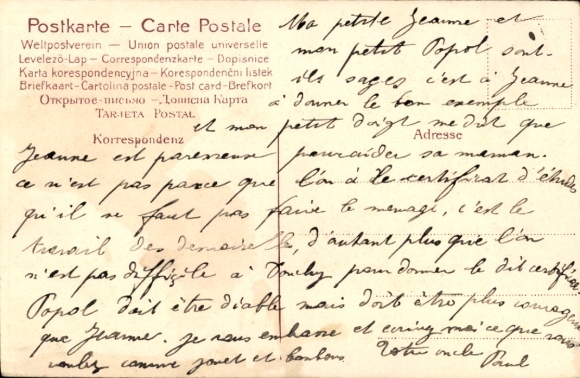 Postkarte — Carte Postale
Weltpostverein — Union postale universelle
Levelező-Lap — Correspondenzkarte — Dopisnice
Karta korespondencyjna — Korespondenční listek
Briefkaart - Cartolina postale - Post card - Brefkort
Открытое-письмо — Дописна Карта
Tarjeta Postal
Korrespondenz
Adresse
Ma petite Jeanne et
mon petit Popol sont-
ils sages c'est à Jeanne
à donner le bon exemple
et mon petit doigt me dit que
Jeanne est paresseuse pour aider sa maman.
ce n'est pas parce que l'on a le certificat d'études
qu'il ne faut pas faire le menage, c'est le
travail des demoiselle, d'autant plus que l'on
n'est pas difficile à pour donner le dit certificat
Popol doit être diable mais doit être plus courageux
que Jeanne. je vous embrasse et ecrivez moi ce que vous
voulez comme jouet et bonbons Votre oncle
Paul